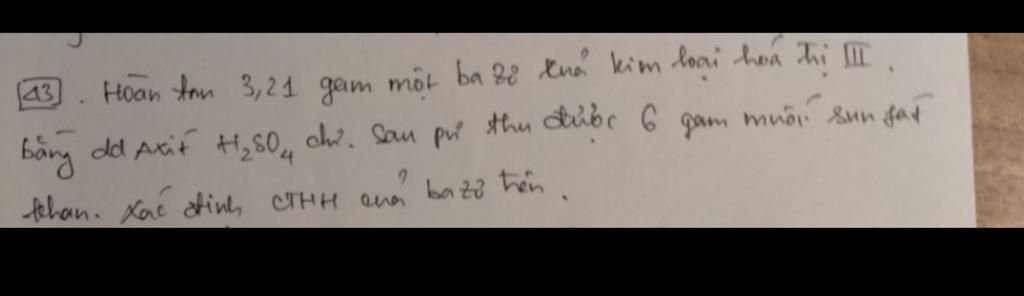 43. Hoàn tan 3,21 gam một ba zơ của kim loại hoá trị III.
bằng dd Axit H₂SO₄ dư. Sau pư thu được 6 gam muối sun fat
khan. Xác định CTHH của ba zơ trên.